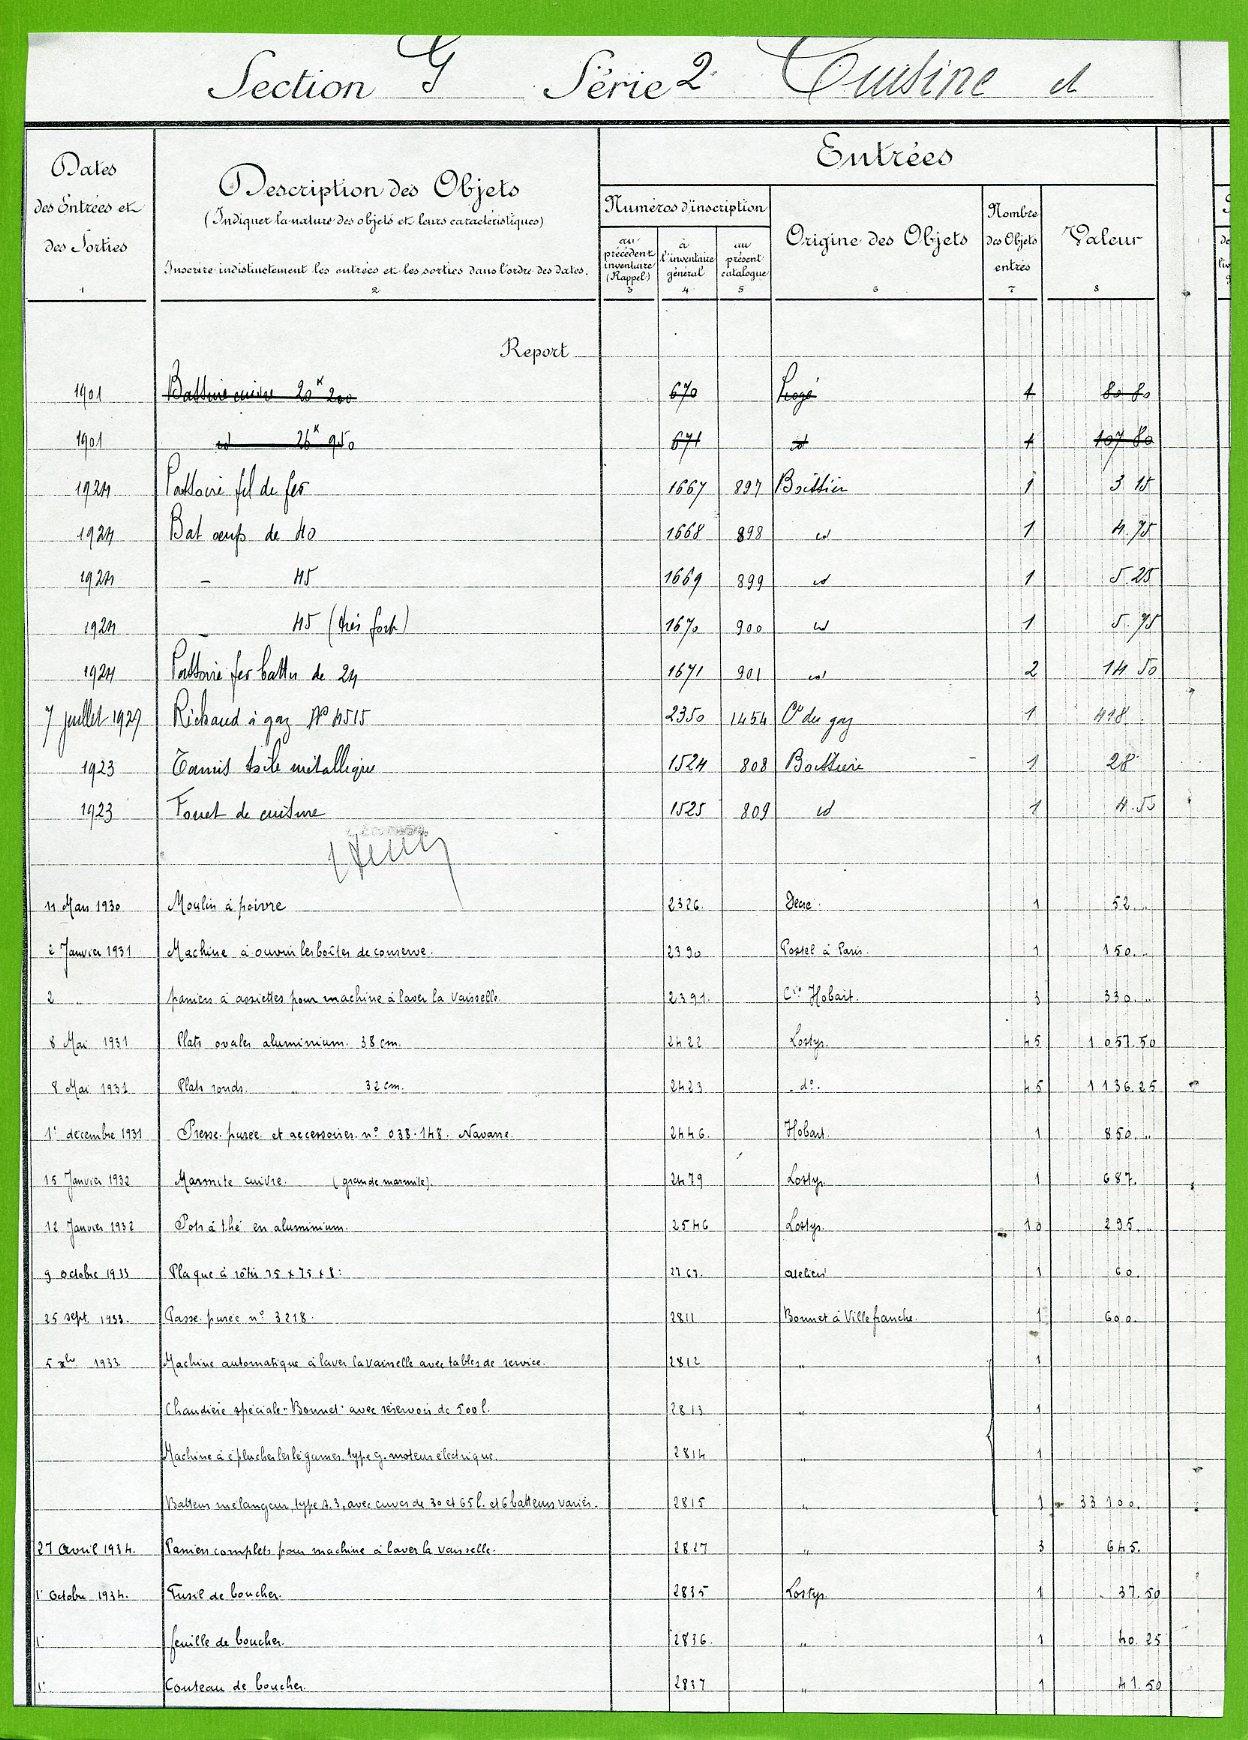 Section G Série 2 Cuisine et
Dates des Entrées et des Sorties
1
Description des Objets
(Indiquer la nature des objets et leurs caractéristiques)
Inscrire indistinctement les entrées et les sorties dans l'ordre des dates.
2
Entrées
Numéros d'inscription
au précédent inventaire (Rappel)
3
à l'inventaire général
4
au présent catalogue
5
Origine des Objets
6
Nombre des Objets entrés
7
Valeur
8
Report
1901 Bassine cuivre 20 x 200 670 1 80 80
1901 id 26 x 950 671 id 1 107 80
1924 Passoire fil de fer 1667 897 Boittier 1 3 15
1924 Bat oeufs de 40 1668 898 id 1 4.75
1924 - 45 1669 899 id 1 5 25
1924 - 45 (très fort) 1670 900 id 1 5.75
1924 Passoire fer battu de 24 1671 901 id 2 14 50
7 juillet 1927 Réchaud à gaz No 4515 2350 1454 Cie du gaz 1 418.
1923 Tamis toile métallique 1524 808 1 28
1923 Fouet de cuisine 1525 809 id 1 4.50
11 Mars 1930 Moulin à poivre 2326. Decré. 1 52. "
2 Janvier 1931 Machine à ouvrir les boîtes de conserve. 2390 Postel à Paris. 1 150. "
2 " paniers à assiettes pour machine à laver la vaisselle. 2391. Cie Hobart. 3 330. "
8 Mai 1931 Plats ovales aluminium. 38 cm. 2422 Lostys. 45 1 057.50
8 Mai 1931 Plats ronds. " 32 cm. 2423 do. 45 1 136.25
1er décembre 1931 Presse purée et accessoires. no 038.148. Navarre. 2446. Hobart. 1 850. "
15 Janvier 1932 Marmite cuivre. (grande marmite). 2479 Lostys. 1 687.
12 Janvier 1932 Pots à thé en aluminium. 2546 Lostys. 10 295.
9 octobre 1933 Plaque à rôtir 75 x 75 x 8: 2767. atelier 1 60.
25 sept. 1933. Passe purée no 3218. 2811 Bonnet à Villefranche. 1 600.
5 Xbre 1933 Machine automatique à laver la vaisselle avec tables de service. 2812 " 1
Chaudière spéciale "Bonnet" avec réservoir de 500 l. 2813 " 1
Machine à éplucher les légumes. type G. moteur électrique. 2814 " 1
Batteur mélangeur, type A.3, avec cuves de 30 et 65 l. et 6 batteurs variés. 2815 " 1 33 100.
27 avril 1934. Paniers complets pour machine à laver la vaisselle. 2827 " 3 645.
1er Octobre 1934. Fusil de boucher. 2835 Lostys. 1 37.50
1er feuille de boucher. 2836. " 1 40.25
1er Couteau de boucher. 2837 " 1 41.50